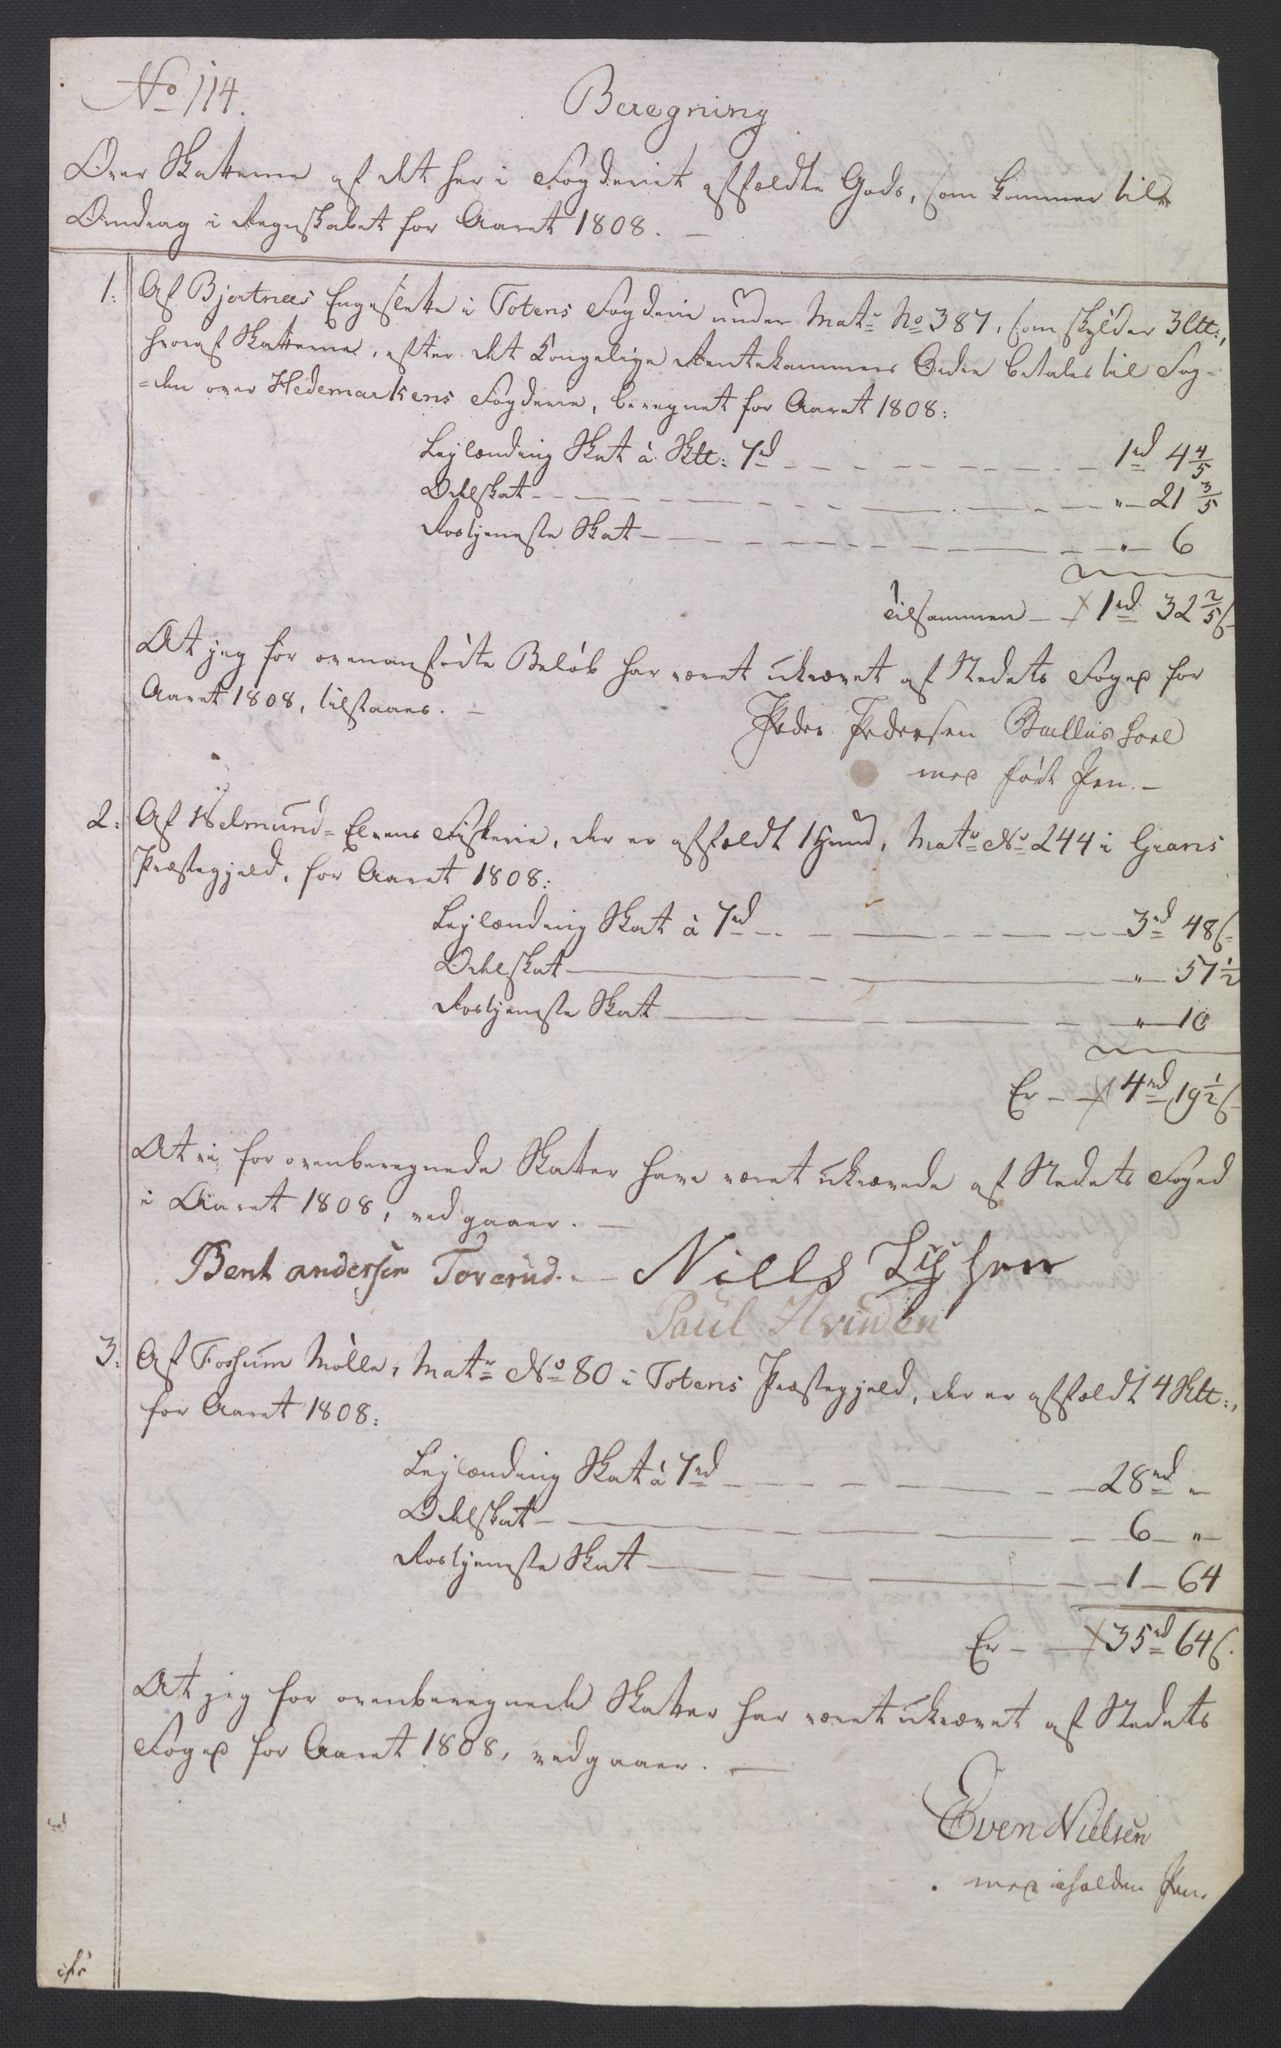 No 114.
Beregning
Over Skatterne af det her i Fogderiet affældte Gods, som kommer til
Omdrag i Regnskabet for Aaret 1808. —
1. Af Bjortnæs Engeslette i Totens Fogderie under Matr: No 387, som skylder 3 ltt:,
hvoraf Skatterne, efter det Kongelige Rentekammers Ordre betales til Fog-
=den over Hedemarkens Fogderie, beregnet for Aaret 1808:
Leylænding Skat à Sktt: 7rd — 1rd 4 4/5
Odelskat — " — 21 3/5
Rostjeneste Skat — " — 6
tilsammen — 1rd 32 2/5 s
At jeg for ovenanførte Beløb har været ukrævet af Stedets Foged for
Aaret 1808, tilstaaes. —
Peder Pedersen
med ført Pen. —
2. Af Elvens Fiskerie, der er affældt 1 Hund, Matr: No 244 i Grans
Præstegjeld, for Aaret 1808:
Leylænding Skat à 7rd — 3rd 48 s
Odelskat — " — 57 1/2
Rostjeneste Skat — " — 10
Er — 4rd 19 1/2 s
At vi for ovenberegnede Skatter have været ukrævede af Stedets Foged
i Aaret 1808, vedgaaer. —
Bent andersen Toverud. — Niells
Paul Hvinden
3. Af Fossum Mølle, Matr: No 80 i Totens Præstegjeld, der er affældt 4 Sktt:,
for Aaret 1808:
Leylænding Skat à 7rd — 28rd "
Odelskat — 6 — "
Rostjeneste Skat — 1 — 64
Er — 35rd 64 s.
At jeg for ovenberegnede Skatter har været ukrævet af Stedets
Foged for Aaret 1808, vedgaaer. —
Even Nielsen
med iholden Pen.